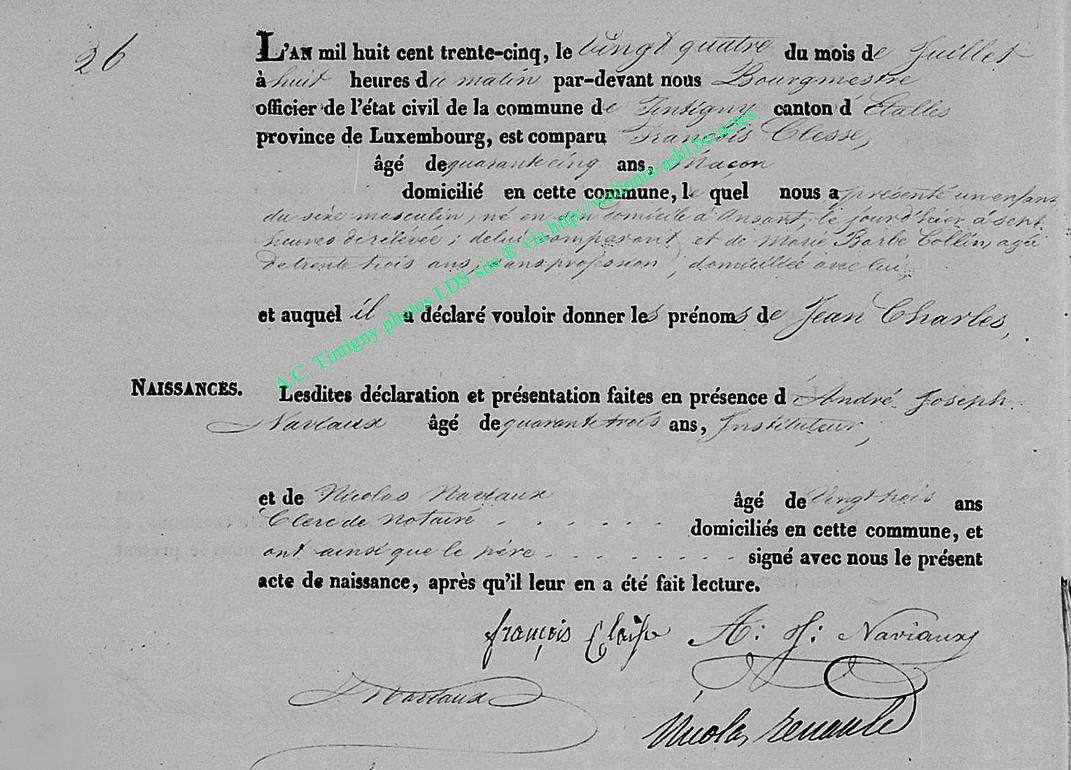 26
L'AN mil huit cent trente-cinq, le Vingt quatre du mois de Juillet
à huit heures du matin par-devant nous Bourgmestre
officier de l'état civil de la commune de Tintigny canton d Etalles
province de Luxembourg, est comparu François Clesse,
âgé de quarante cinq ans, Maçon
domicilié en cette commune, le quel nous a présenté un enfant
du sexe masculin, né en son domicile à Ansart, le jour d'hier, à sept
heures de relévée ; de lui comparant, et de Marie Barbe Collin, agée
de trente trois ans, sans profession, domiciliée avec lui,
et auquel il a déclaré vouloir donner les prénoms de Jean Charles,
NAISSANCES. Lesdites déclaration et présentation faites en présence d André Joseph
Naviaux âgé de quarante trois ans, Instituteur,
et de Nicolas Naviaux âgé de Vingt trois ans
Clerc de Notaire . . . . . . domiciliés en cette commune, et
ont ainsi que le père . . . . . . . signé avec nous le présent
acte de naissance, après qu'il leur en a été fait lecture.
françois A: J: Naviaux
Naviaux
Nicolas
A.C. Tintigny photos LDS site ® via http://wallonia-asbl.be/actes